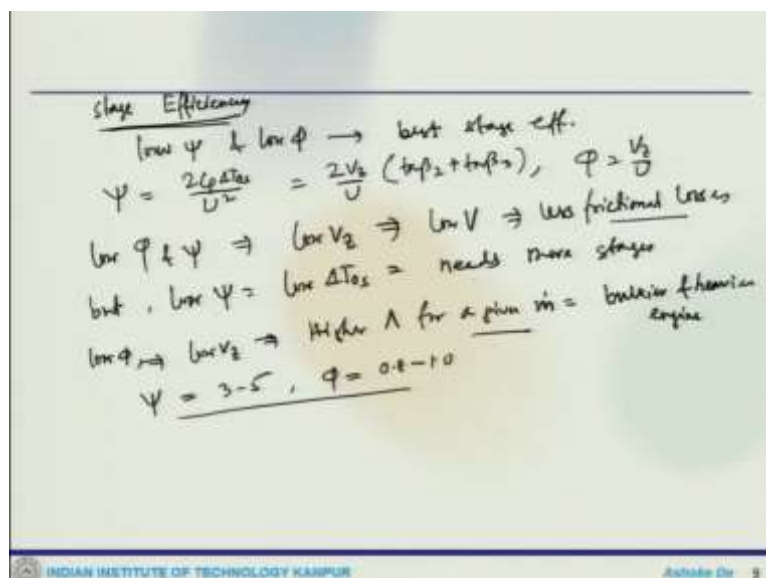 Stage Efficiency
low ψ & low φ → best stage eff.
ψ = 2CpΔTos / U² = 2Vz / U (tanβ2 + tanβ3), φ = Vz / U
low φ & ψ ⇒ low Vz ⇒ low V ⇒ less frictional losses
but, low ψ = low ΔTos = needs more stages
low φ, → low Vz ⇒ Higher A for a given ṁ = bulkier & heavier
engine
ψ = 3-5, φ = 0.8-1.0
INDIAN INSTITUTE OF TECHNOLOGY KANPUR
Ashoke De 9